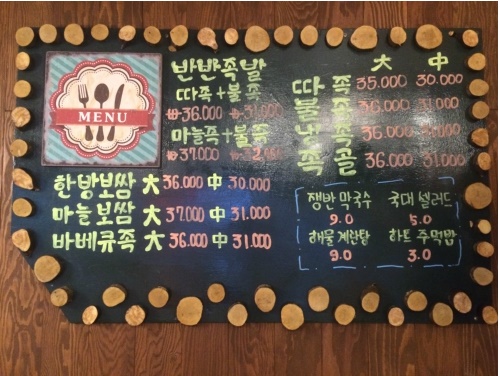 MENU
반반족발
따족+불족
大 36.000 中 31.000
마늘족+불족
大 37.000 中 32.000
한방보쌈 大 36.000 中 30.000
마늘보쌈 大 37.000 中 31.000
바베큐족 大 36.000 中 31.000
大 中
따족 35.000 30.000
불족 36.000 31.000
냉족 36.000 31.000
족골 36.000 31.000
쟁반막국수 국대샐러드
9.0 5.0
해물계란탕 하트주먹밥
9.0 3.0